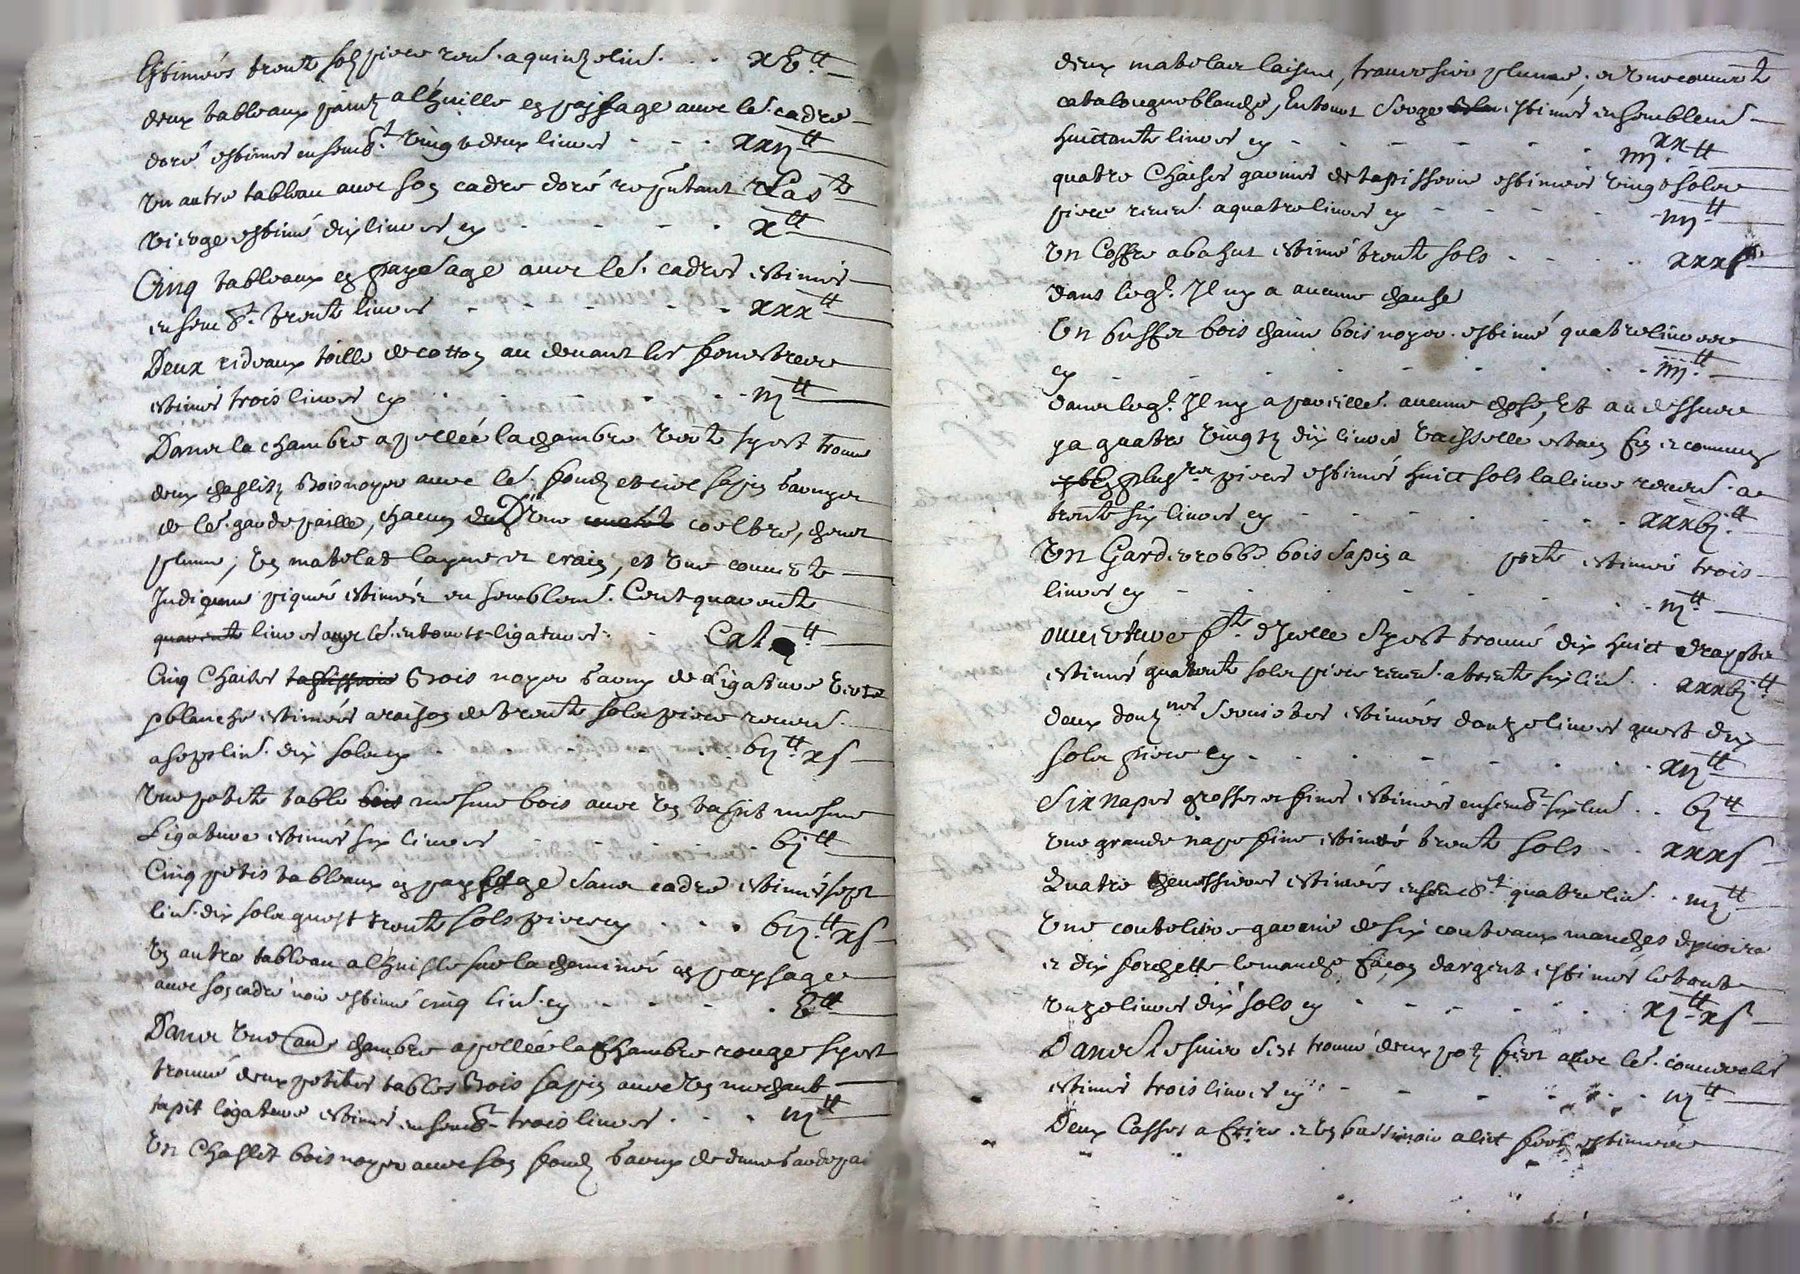 Estimées trente solz piece rev. a quinze liv. . . xv.tt
deux tableaux peintz a l'huille en paysage avec les. cadre
doré estimes ensemb.t vingt deux livres - - - xxij.tt
un autre tableau avec son cadre doré rep.ntant la s.te
vierge estimé dix livres cy - - - - x.tt
Cinq tableaux en paysage avec les. cadres estimés
ensemb.t trente livres - - - - - xxx.tt
Deux rideaux toille de cotton au devant les fenestres
estimés trois livres cy - - - - - iij.tt
Dans la chambre apellée la chambre verte s'y est trouvé
deux chaslitz bois noyer avec les. fondz et ciel sapin garnys
de les. garde paille, chacun d'une coeltre, chevet
plume, un matelat layne et crain, et une couverte
Indienne piquée estimés ensemblem.t Cent quarante
livres avec les. entours ligatures. - - Cxl.tt
Cinq Chaises bois noyer garnys de Ligature verte
& blanche estimées a raison de trente solz piece reven.
a sept liv. dix solz cy - - - - - vij.tt x s
Une petite table mesme bois avec un tapit mesme
Ligature estimés six livres - - - - - vj.tt
Cinq petis tableaux en paysage sans cadre estimés sept
liv. dix solz quest trente sols piece cy - - - vij.tt x s
un autre tableau a l'huille sur la cheminé en paysage
avec son cadre noir estimé cinq liv. cy - - - - v.tt
Dans une au.e chambre apellée la Chambre rouge s'y est
trouvé deux petites tables bois sapin avec un mechant
tapit ligature estimés ensemb.t trois livres. - - - iij.tt
Un Chaslit bois noyer avec son fondz garny de d'une gardepai
deux matelas laisne, traversier plume, et une couverte
catalougne blanche, Entour Serge estimés ensemblem.t
huittante livres cy - - - - - - iiij.xx tt
quatre Chaises garnies de tapisserie estimées vingt solz
piece reven. a quatre livres cy - - - - iiij.tt
Un Coffre a bahut estimé trente sols - - - - xxx s
dans leq.l Il n'y a aucune chause
Un buffet bois chaine bois noyer estimé quatre livres
cy - - - - - - - - - - iiij.tt
dans leq.l Il n'y a pareillem.t aucune chose, Et au dessus
y a quatre vingtz dix livres vaisselle estain fin et commun
plus.rs pieces estimés huict sols la livre reven. a
trente six livres cy - - - - - - xxxvj.tt
Un Garderobbe bois sapin a porte estimé trois
livres cy - - - - - - - - - iij.tt
ouverture f.te d'Icelle s'y est trouvé dix huict draps
estimés quarante solz piece reven. a trente six liv. . xxxvj.tt
deux douz.nes serviettes estimées douze livres quest dix
solz piece cy - - - - - - - - xij.tt
Six napes grosses et fines estimées ensemb.t six liv. . . vj.tt
une grande nape fine estimée trente sols - - xxx s
Quatre estimés ensemb.t quatre liv. . iiij.tt
Une couteliere garnie de six couteaux manches d'yvoire
et dix forchette le manche façon d'argent estimés le tout
unze livres dix sols cy - - - - - - xj.tt x s
Dans s'est trouvé deux potz fert avec les. couvercles
estimés trois livres cy - - - - - - iij.tt
Deux Casses a frire et un bassinoir a lict fort estimées